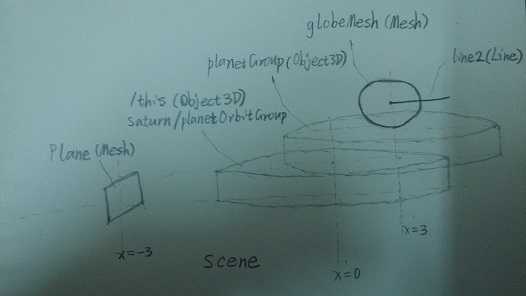 globeMesh (Mesh)
planetGroup (Object3D)
line2 (Line)
/this (Object3D)
saturn/planetOrbitGroup
Plane (Mesh)
x=-3
scene
x=0
x=3